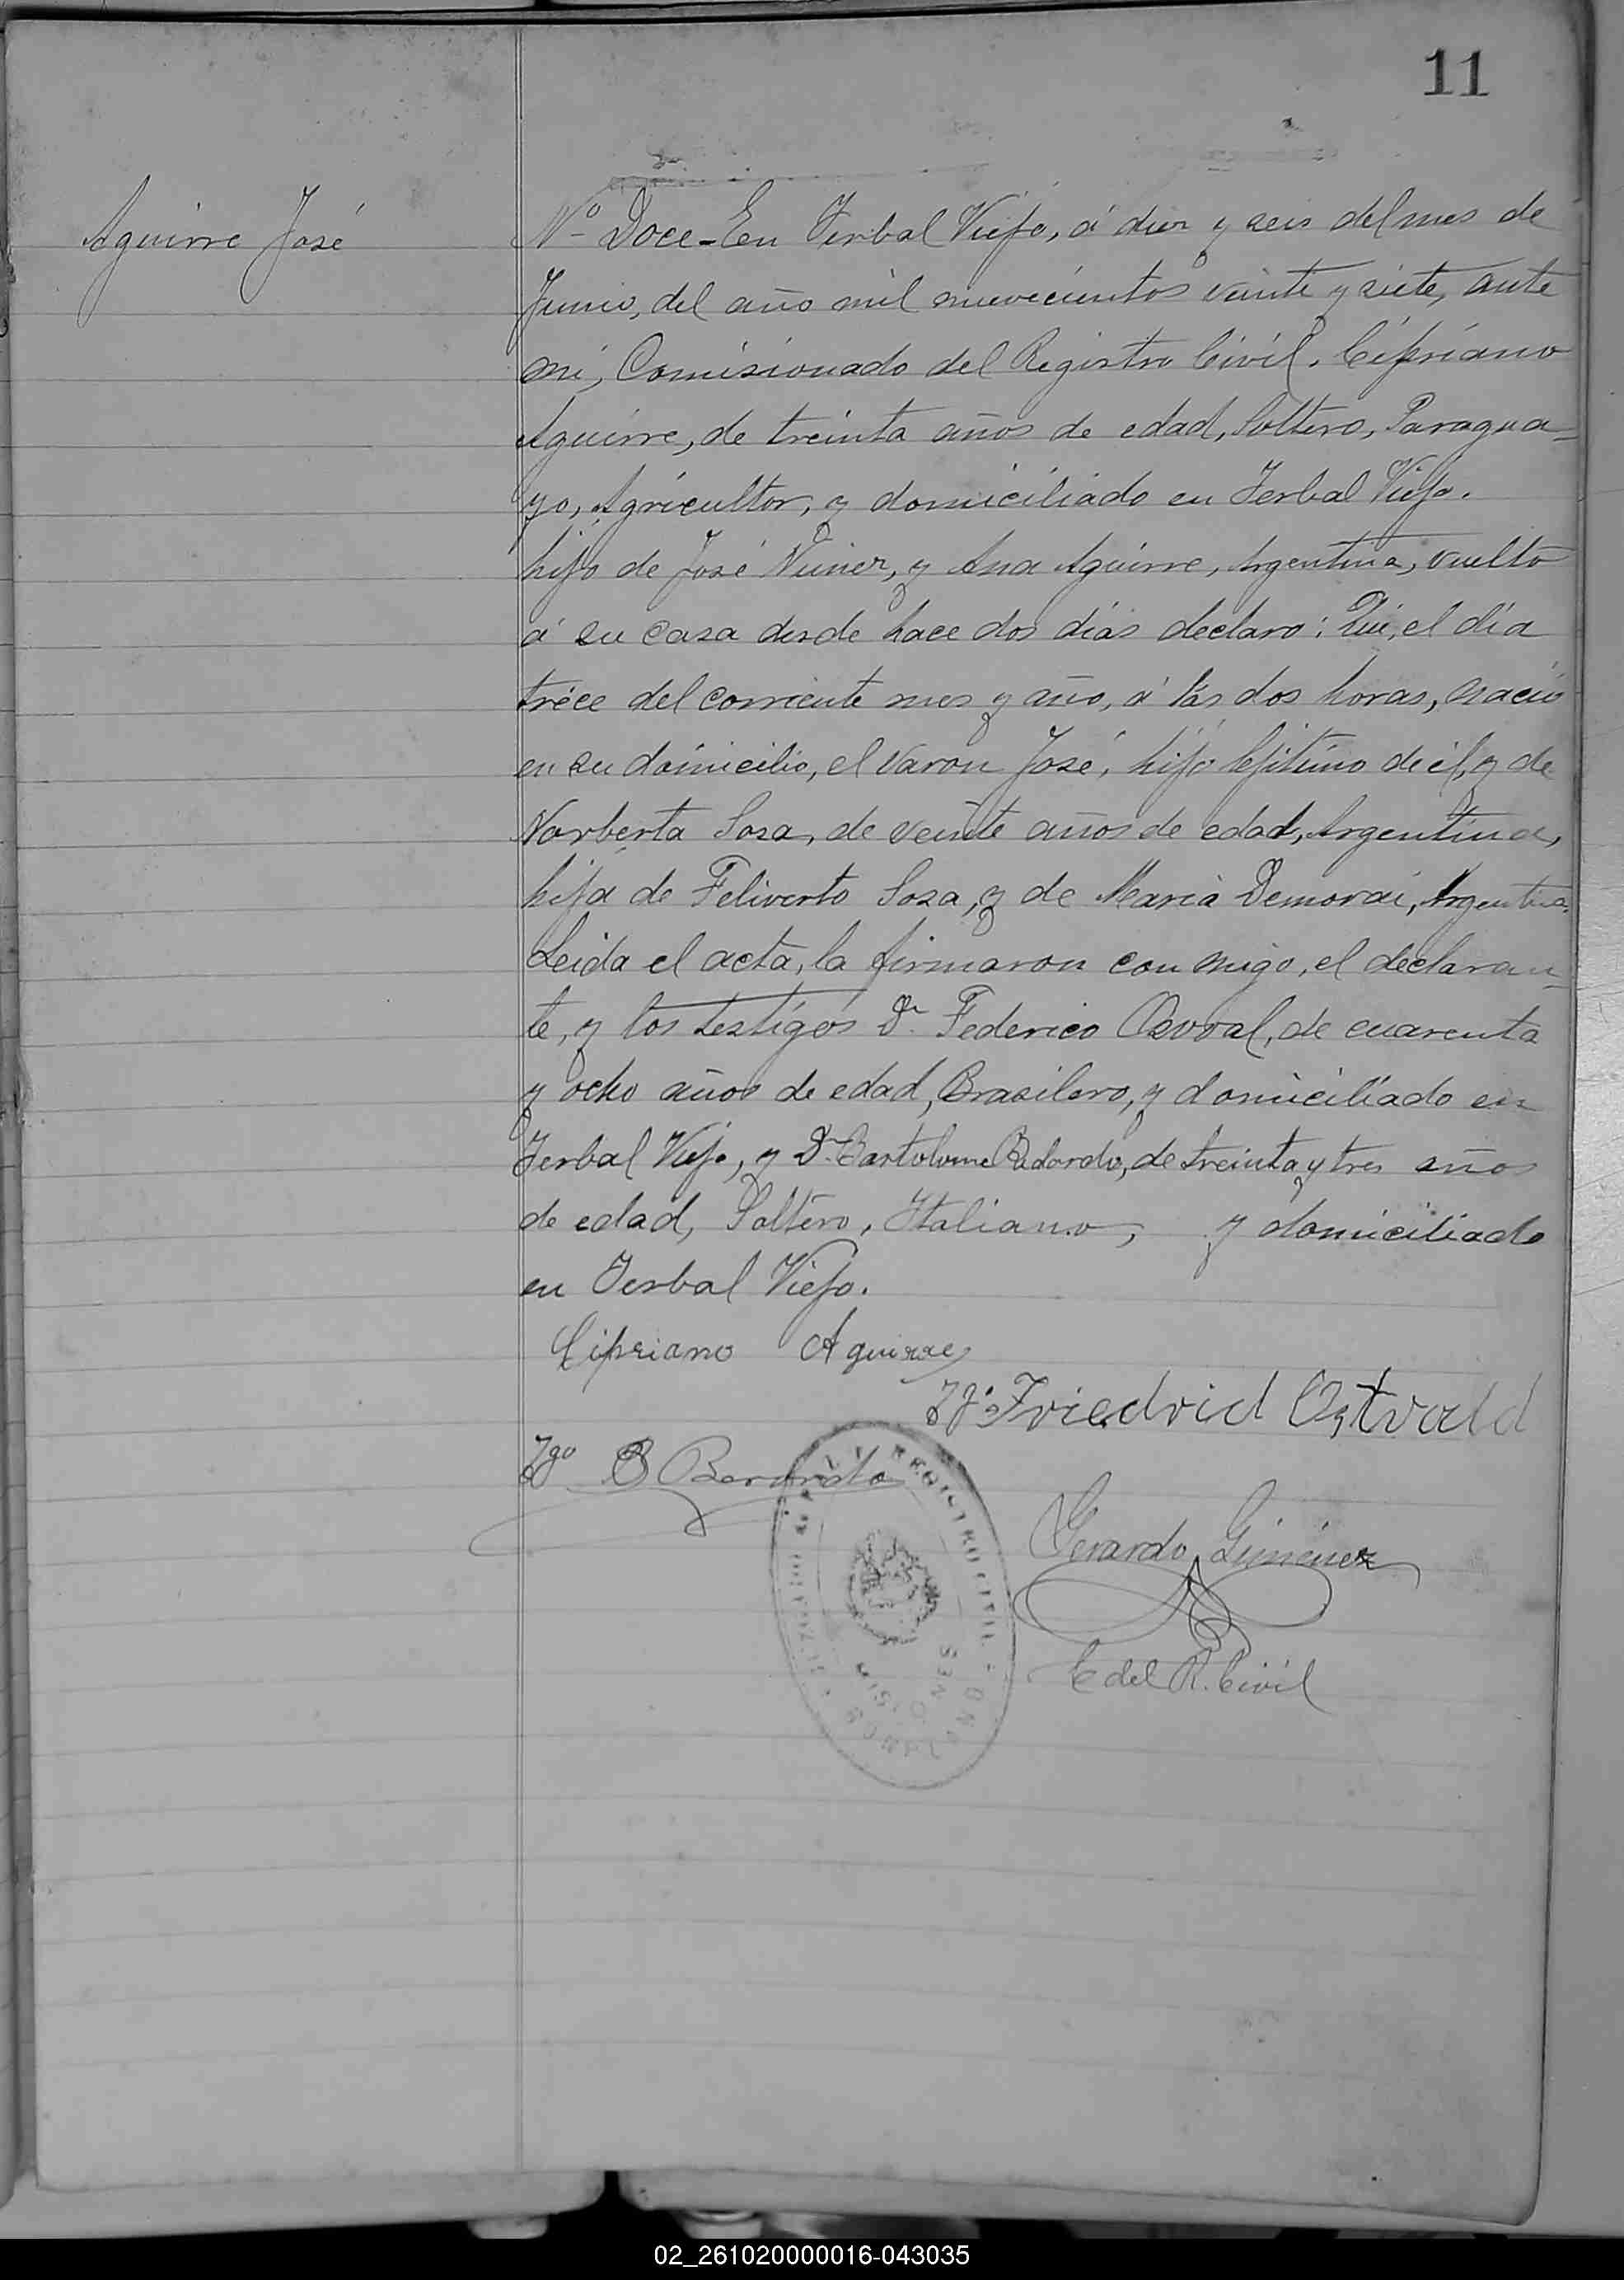 11
Aguirre José
Nº Doce - En Yerbal Viejo, á diez y seis del mes de
Junio, del año mil nuevecientos veinte y siete, ante
mi, Comisionado del Registro Civil, Cipriano
Aguirre, de treinta años de edad, Soltero, Paragua-
yo, Agricultor, y domiciliado en Yerbal Viejo.
hijo de José Nuñez, y Ana Aguirre, Argentina, vuelto
á su casa desde hace dos días declaro: Que, el día
tréce del corriente mes y año, á las dos horas, nació
en su domicilio, el Varon José, hijo lejitimo de él, y de
Norberta Sosa, de veinte años de edad, Argentina,
hija de Feliverto Sosa, y de María Demorai, Argentina.
Leida el acta, la firmaron con migo, el declaran-
te, y los testigos Dn Federico Osvval, de cuarenta
y ocho años de edad, Brasilero, y domiciliado en
Yerbal Viejo, y Dn Bartolome, de treinta y tres años
de edad, Soltero, Italiano, y domiciliado
en Yerbal Viejo.
Cipriano Aguirre
Tgo Friedrid Ostvald
Tgo B
Gerardo Giménez
C del R. Civil
REGISTRO CIVIL
MISIONES
02_261020000016-043035